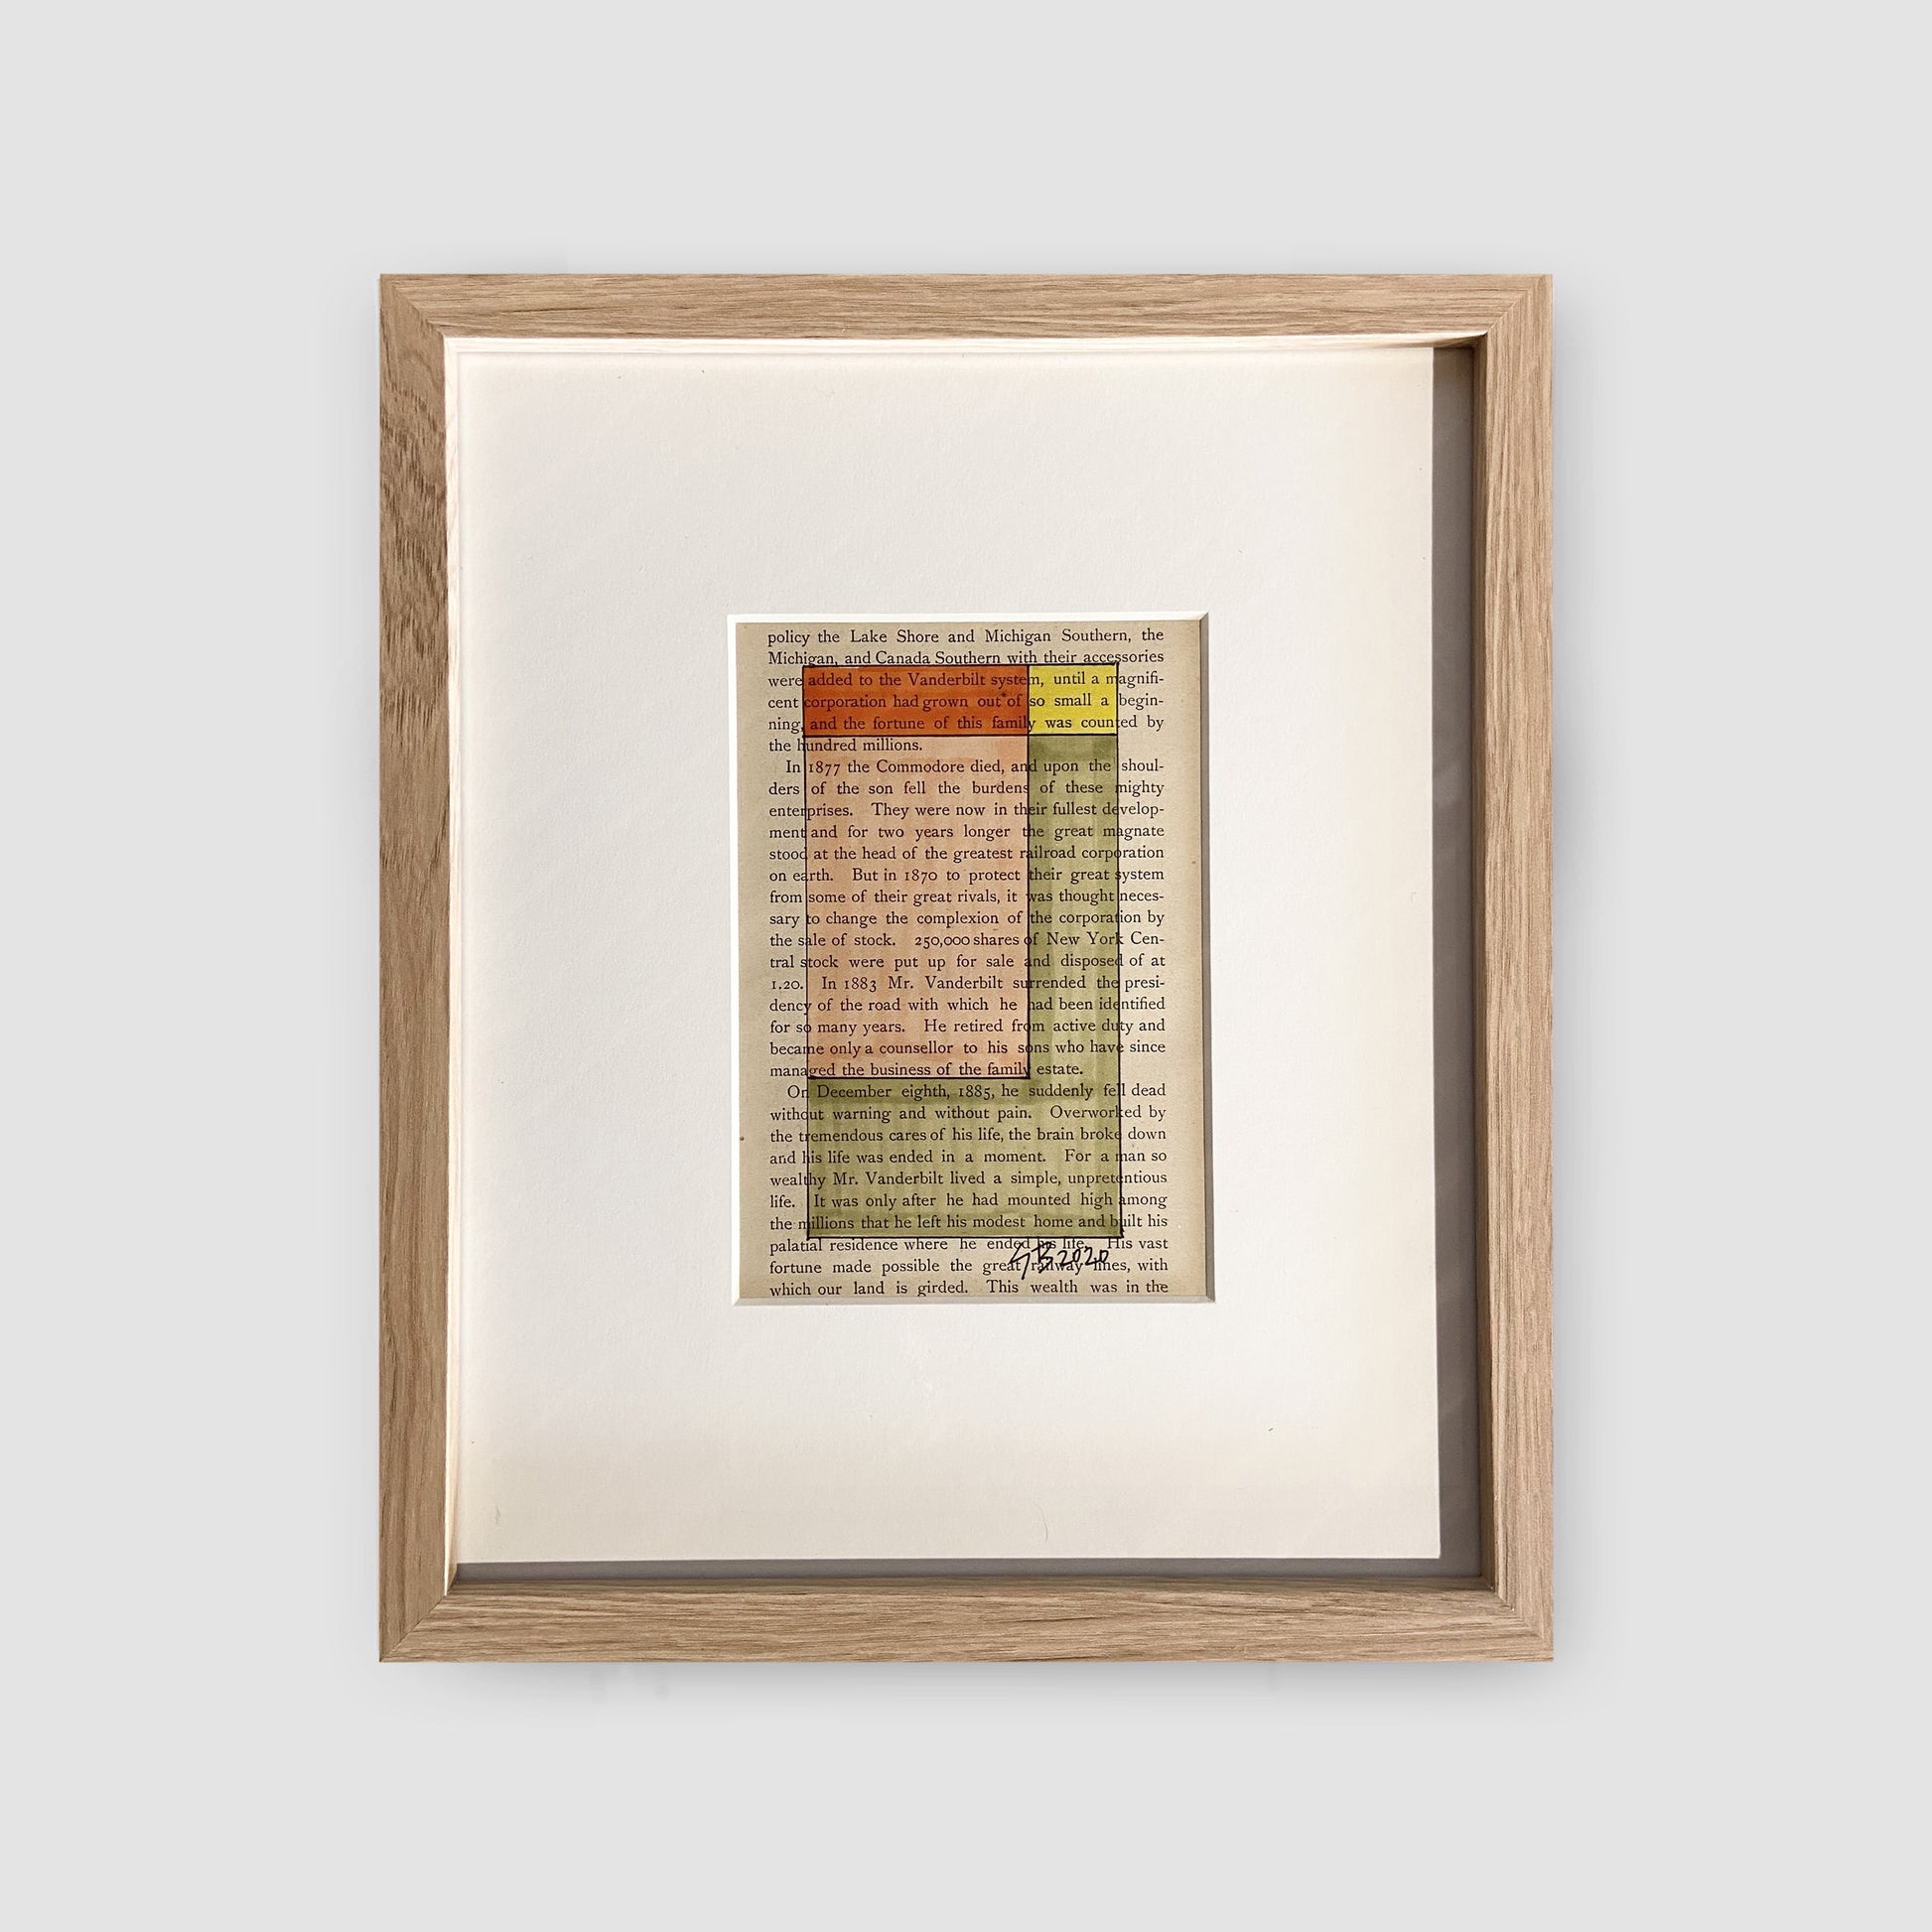 policy the Lake Shore and Michigan Southern, the
Michigan, and Canada Southern with their accessories
were added to the Vanderbilt system, until a magnifi-
cent corporation had grown out of so small a begin-
ning, and the fortune of this family was counted by
the hundred millions.
In 1877 the Commodore died, and upon the shoul-
ders of the son fell the burdens of these mighty
enterprises. They were now in their fullest develop-
ment and for two years longer the great magnate
stood at the head of the greatest railroad corporation
on earth. But in 1870 to protect their great system
from some of their great rivals, it was thought neces-
sary to change the complexion of the corporation by
the sale of stock. 250,000 shares of New York Cen-
tral stock were put up for sale and disposed of at
1.20. In 1883 Mr. Vanderbilt surrended the presi-
dency of the road with which he had been identified
for so many years. He retired from active duty and
became only a counsellor to his sons who have since
managed the business of the family estate.
On December eighth, 1885, he suddenly fell dead
without warning and without pain. Overworked by
the tremendous cares of his life, the brain broke down
and his life was ended in a moment. For a man so
wealthy Mr. Vanderbilt lived a simple, unpretentious
life. It was only after he had mounted high among
the millions that he left his modest home and built his
palatial residence where he ended his life. His vast
fortune made possible the great railway lines, with
which our land is girded. This wealth was in the
SB 2020